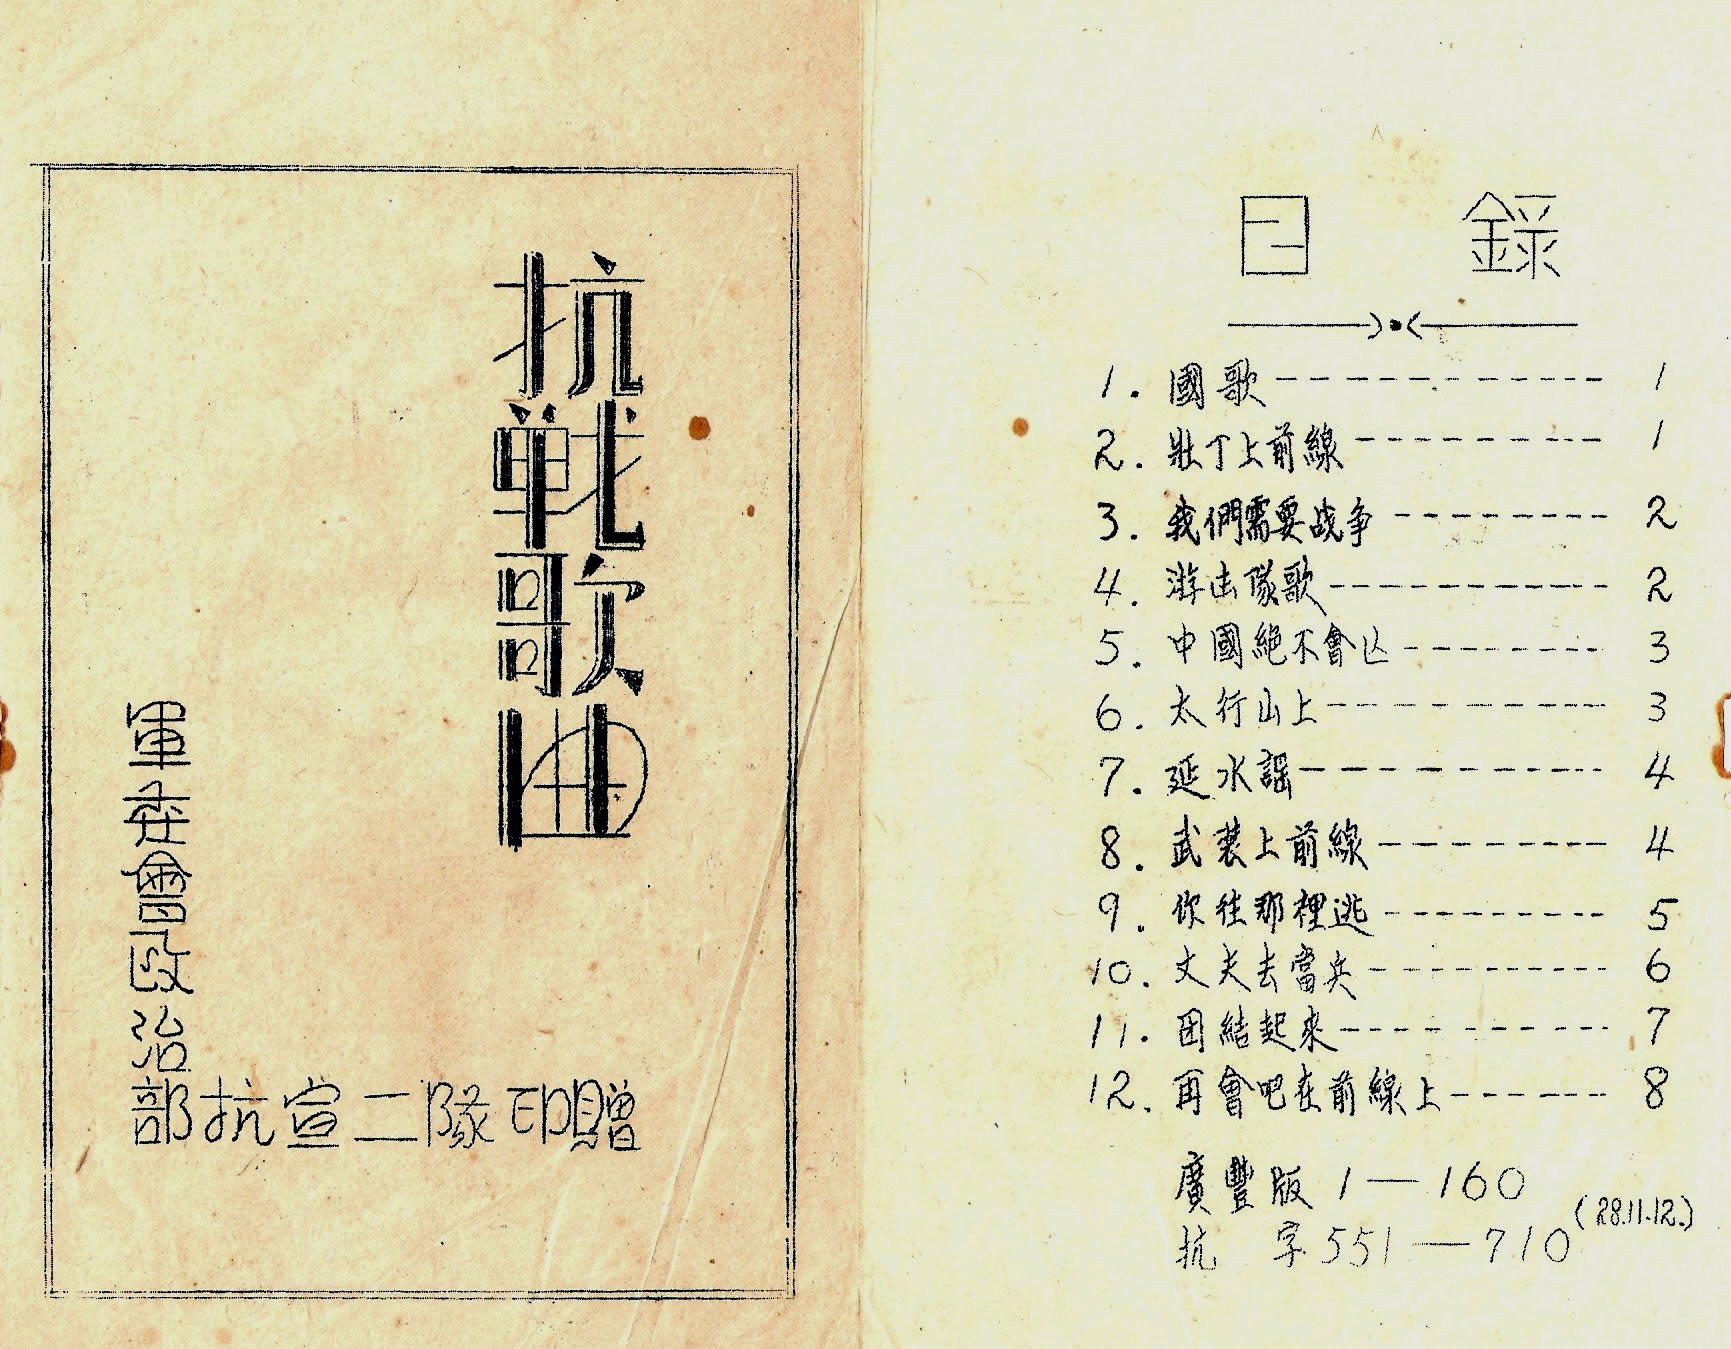 抗戰歌曲
軍委會政治
部抗宣二隊印贈
目錄
1. 國歌 1
2. 壯丁上前線 1
3. 我們需要战争 2
4. 游击隊歌 2
5. 中國絕不會亡 3
6. 太行山上 3
7. 延水謡 4
8. 武装上前線 4
9. 你往那裡逃 5
10. 丈夫去當兵 6
11. 团結起來 7
12. 再會吧在前線上 8
廣豐版 1—160
抗 字 551—710 (28.11.12.)